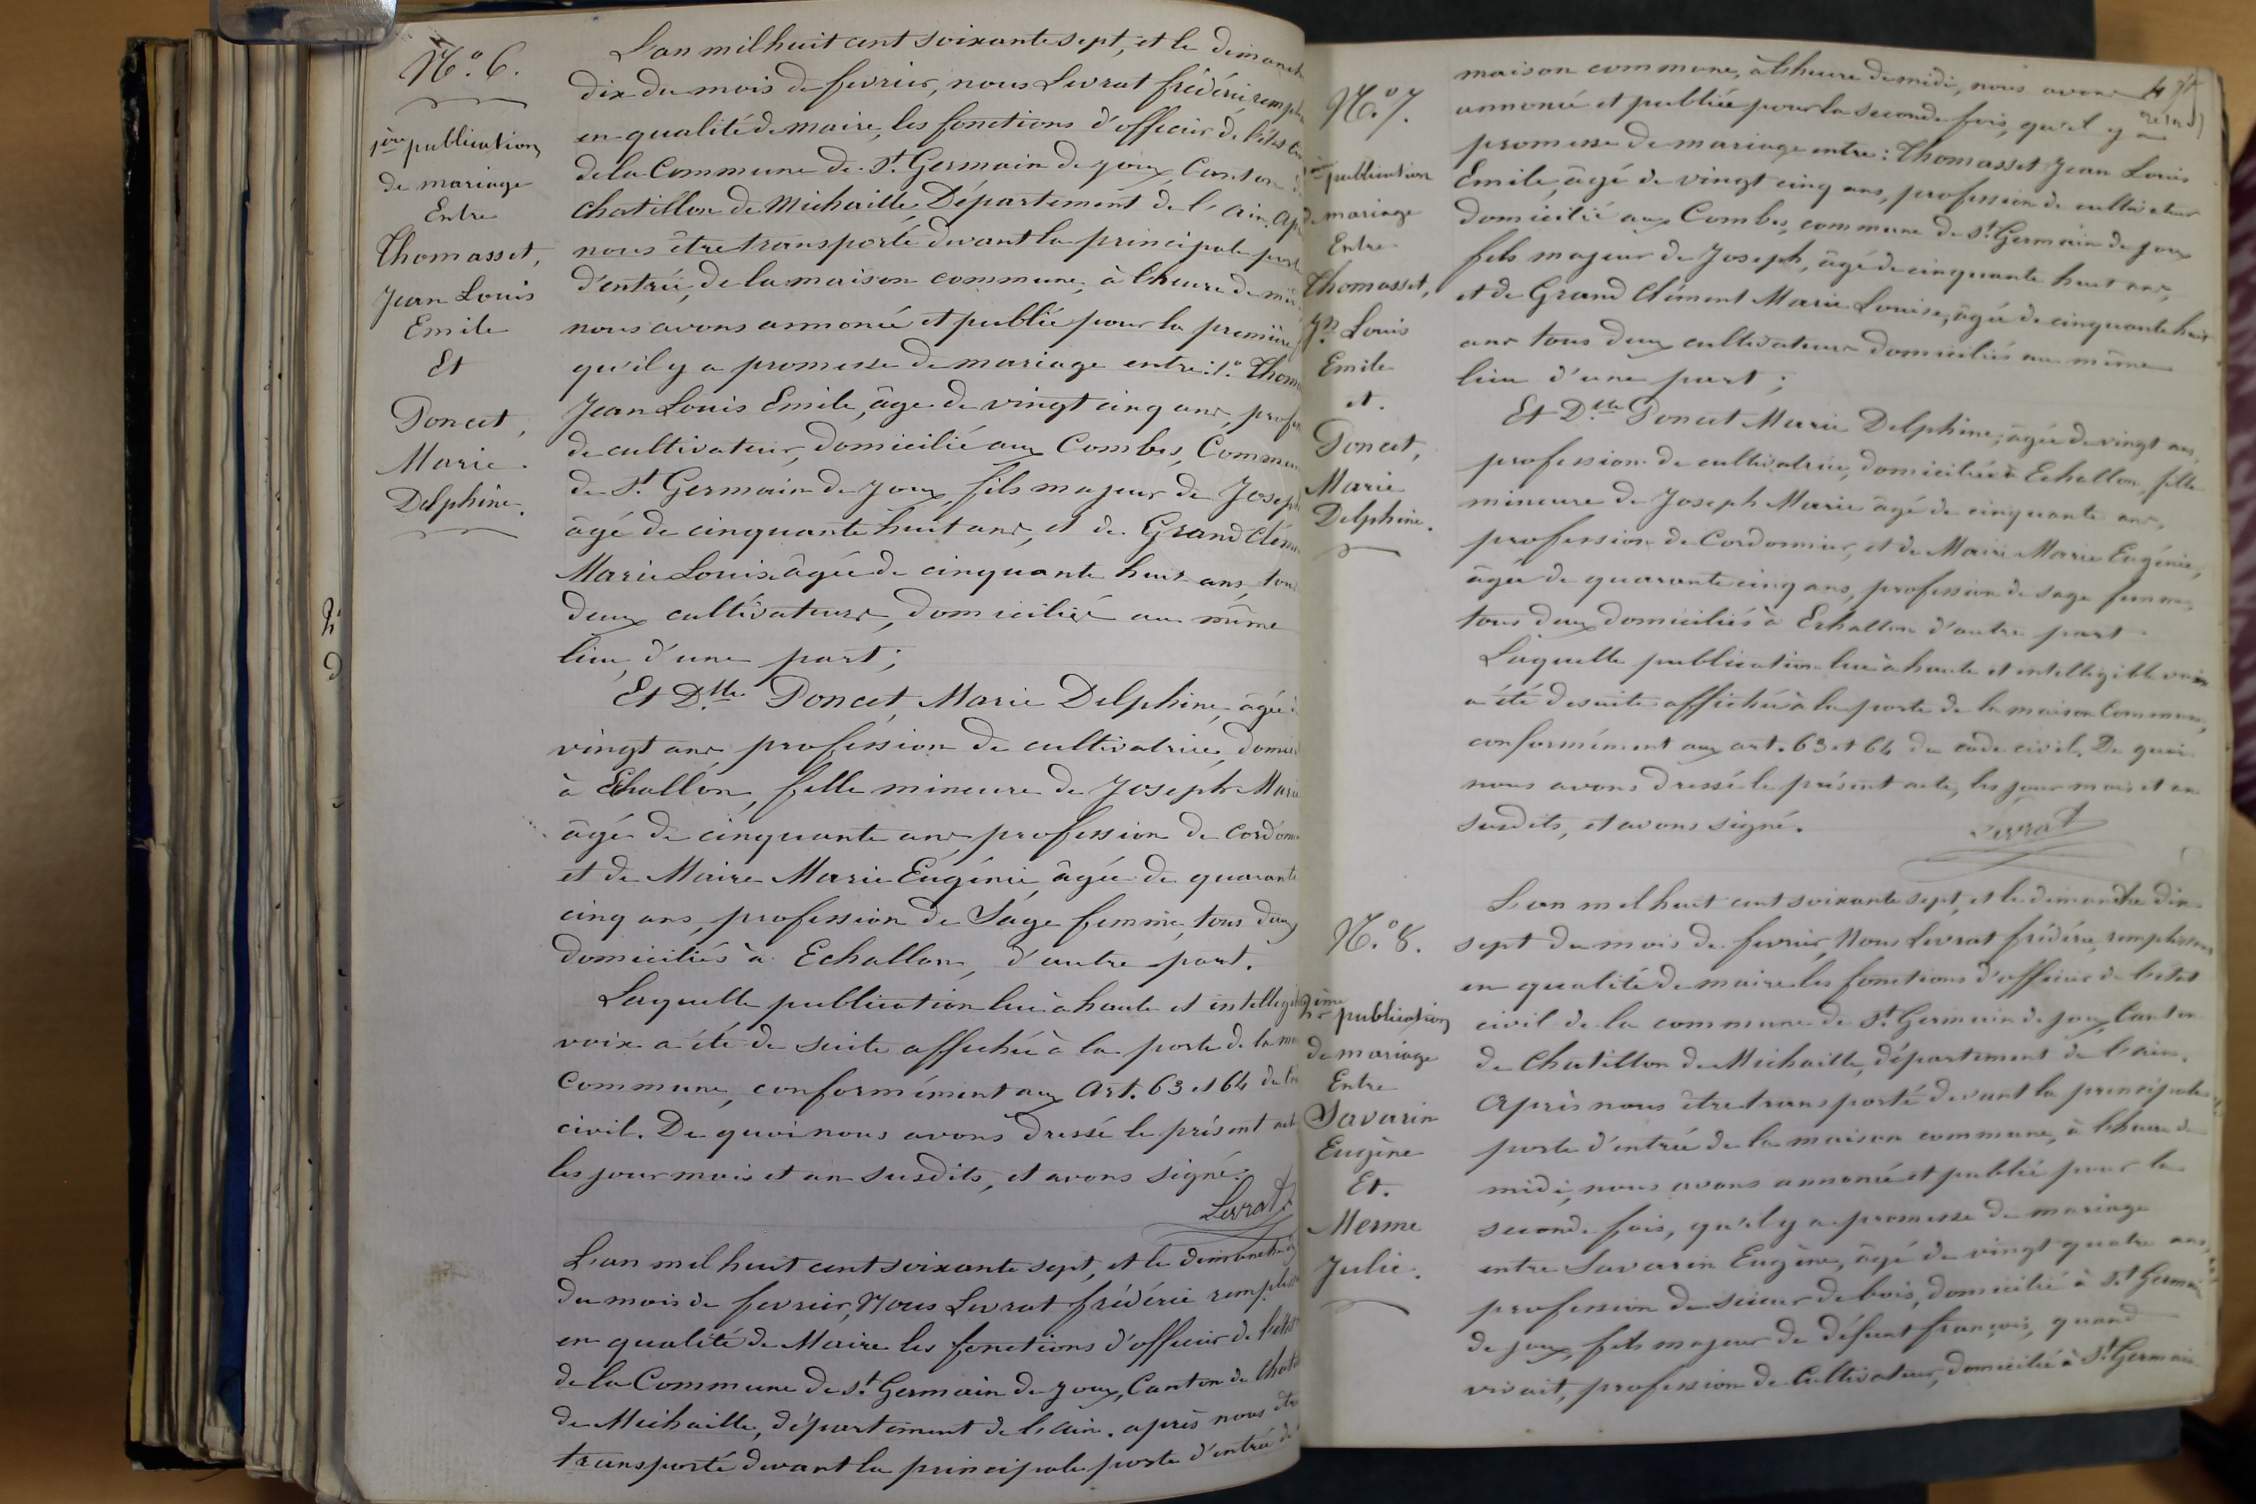 N.o 6.
1ère publication
de mariage
Entre
Thomasset,
Jean Louis
Emile
Et
Poncet,
Marie
Delphine.
L'an mil huit cent soixante sept, et le dimanche
dix du mois de fevrier, nous Levrat frédéric, rempl
en qualité de maire, les fonctions d'officier de l'état
de la Commune de St Germain de joux, Canton
Chatillon de Michaille, Département de l'ain, ap
nous être transporté devant la principale porte
d'entrée, de la maison commune, à l'heure de mi
nous avons annoncé et publié pour la première
qu'il y a promesse de mariage entre: 1.o Thom
Jean Louis Emile, âgé de vingt cinq ans, profe
de cultivateur, domicilié aux Combes, Commu
de St Germain de joux, fils majeur de Joseph
âgé de cinquante huit ans, et de Grand Clém
Marie Louise âgée de cinquante huit ans, tous
deux cultivateurs, domiciliés au même
lieu, d'une part;
Et D.lle Poncet, Marie Delphine, âgée
vingt ans, profession de cultivatrice, domici
à Echallon, fille mineure de Joseph Marie
âgé de cinquante ans, profession de cordon
et de Maire Marie Eugénie, âgée de quarante
cinq ans, profession de Sage femme, tous deux
domiciliés à Echallon, d'autre part.
Laquelle publication lue à haute et intellig
voix a été de suite affichée à la porte de la m
Commune, conformément aux Art. 63 et 64 du
civil. De quoi nous avons dressé le présent acte
les jour mois et an susdits, et avons signé.
Levrat
L'an mil huit cent soixante sept, et le dimanche
du mois de fevrier, Nous Levrat frédéric rempl
en qualité de Maire les fonctions d'officier de l'état
de la Commune de St Germain de joux, Canton de Chat
de Michaille, département de l'ain. après nous être
transporté devant la principale porte d'entrée de
N.o 7.
publication
de mariage
Entre
Thomasset,
Jn Louis
Emile
et.
Poncet,
Marie
Delphine.
maison commune, à l'heure de midi, nous avons
annoncé et publiée pour la seconde fois, qu'il y a
promesse de mariage entre: Thomasset Jean Louis
Emile, âgé de vingt cinq ans, profession de cultivateur
domicilié aux Combes, commune de St Germain de joux
fils majeur de Joseph, âgé de cinquante huit ans,
et de Grand Clément Marie Louise, âgée de cinquante huit
ans tous deux cultivateurs domiciliés au même
lieu d'une part;
Et D.lle Poncet Marie Delphine, âgée de vingt ans,
profession de cultivatrice, domiciliée à Echallon, fille
mineure de Joseph Marie âgé de cinquante ans,
profession de Cordonnier, et de Maire Marie Eugénie,
âgée de quarante cinq ans, profession de sage femme,
tous deux domiciliés à Echallon d'autre part.
Laquelle publication lue à haute et intelligible voix
a été de suite affichée à la porte de la maison Commune,
conformément aux art. 63 et 64 du code civil. De quoi
nous avons dressé le présent acte, les jour mois et an
susdits, et avons signé.
Levrat
N.o 8.
2ème publication
de mariage
Entre
Savarin
Eugène
Et.
Merme
Julie.
L'an mil huit cent soixante sept, et le dimanche dix
sept du mois de fevrier, Nous Levrat frédéric, remplissant
en qualité de maire les fonctions d'officier de l'état
civil de la commune de St Germain de joux, Canton
de Chatillon de Michaille, département de l'ain.
Après nous être transporté devant la principale
porte d'entrée de la maison commune, à l'heure de
midi, nous avons annoncé et publié pour la
seconde fois, qu'il y a promesse de mariage
entre Savarin Eugène, âgé de vingt quatre ans,
profession de scieur de bois, domicilié à St Germain
de joux, fils majeur de défunt françois, quand
vivait, profession de Cultivateur, domicilié à St Germain